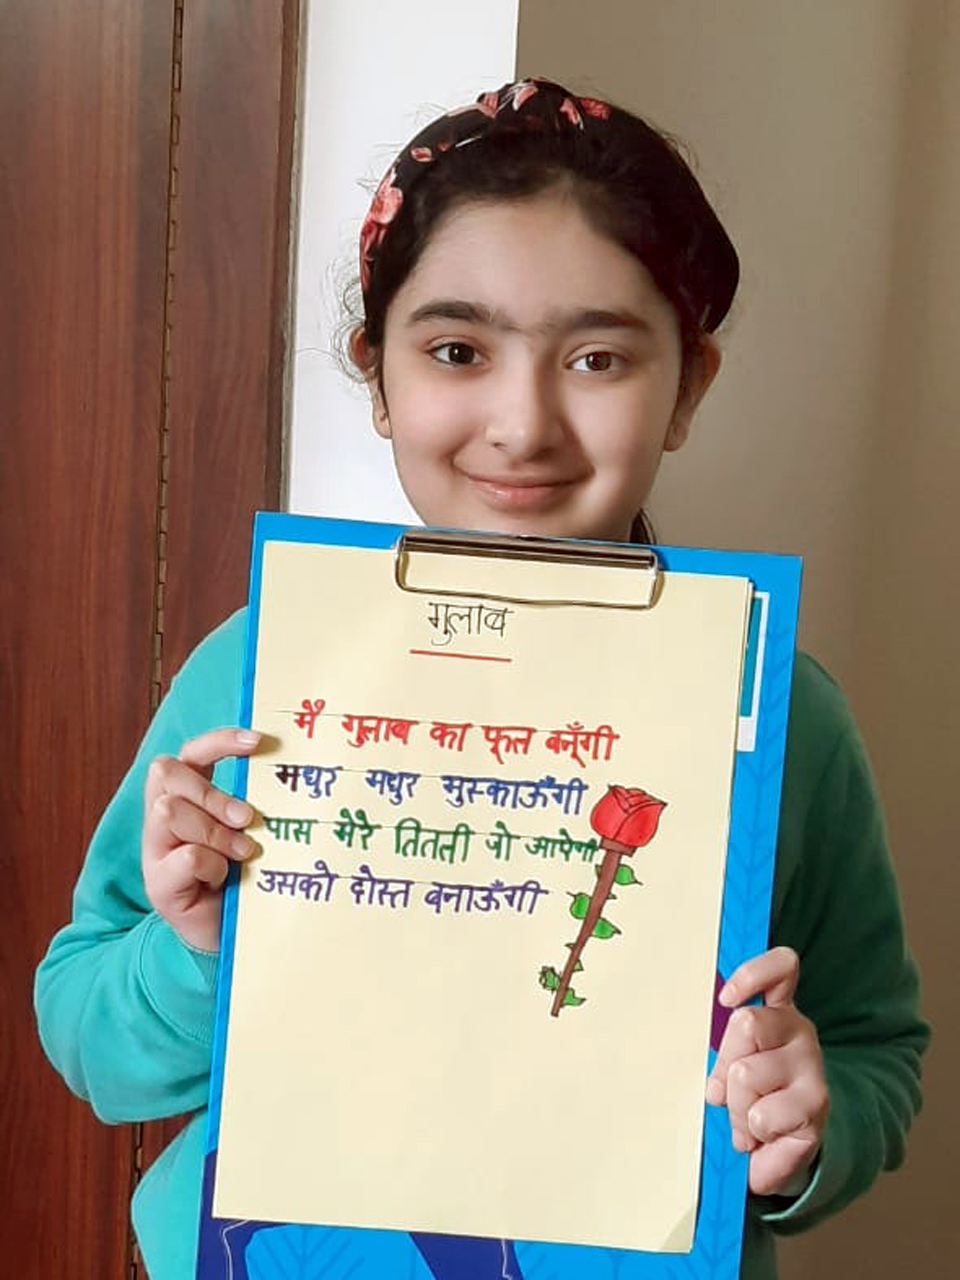 गुलाब
मै गुलाब का फूल बनूँगी
मधुर मधुर मुस्काऊँगी
पास मेरे तितली जो आयेगी
उसको दोस्त बनाऊँगी